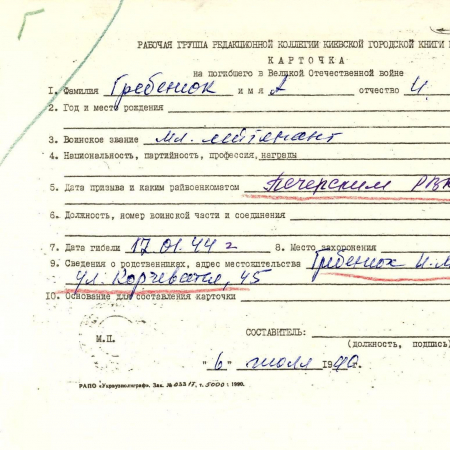 РАБОЧАЯ ГРУППА РЕДАКЦИОННОЙ КОЛЛЕГИИ КИЕВСКОЙ ГОРОДСКОЙ КНИГИ
КАРТОЧКА
на погибшего в Великой Отечественной войне
1. Фамилия Гребенюк имя А отчество И
2. Год и место рождения
3. Воинское звание мл. лейтенант
4. Национальность, партийность, профессия, награды
5. Дата призыва и каким райвоенкоматом Печерским РВК
6. Должность, номер воинской части и соединения
7. Дата гибели 17.01.44 г 8. Место захоронения
9. Сведения о родственниках, адрес местожительства Гребенюк И.М
ул. Корчеватая, 45
10. Основание для составления карточки
СОСТАВИТЕЛЬ:
М.П. (должность, подпись)
"6" июля 1990г.
РАПО «Укрвузполиграф». Зак. № 03317, т. 5000: 1990.